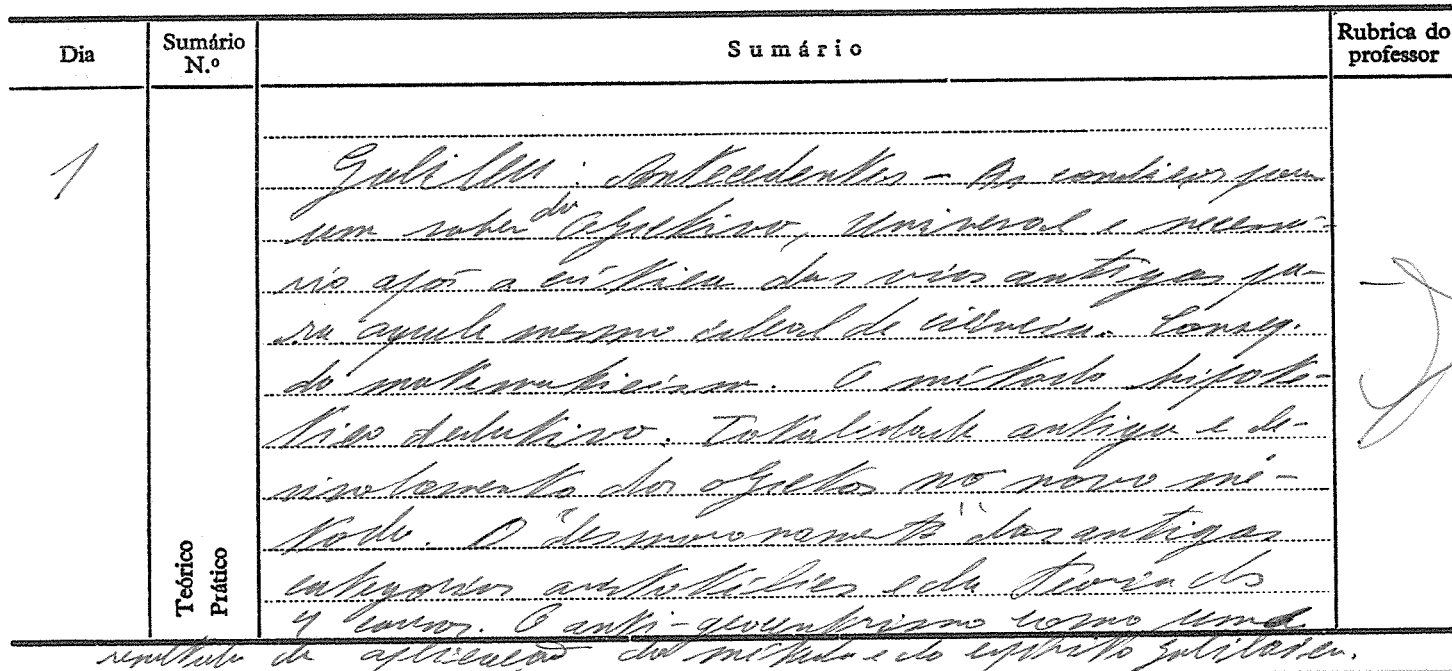 Dia
Sumário N.º
Sumário
Rubrica do professor
1
Galileu: Antecedentes - As condições para
um saber do objetivo, universal e necessá-
rio após a crítica das vias antigas pa-
ra aquele mesmo ideal de ciência. Conseq.
do matematicismo. O método hipoté-
tico dedutivo. Totalidade antiga e de-
dos objetos no novo mé-
todo. O "desmoronamento" das antigas
categorias aristotélicas e da Teoria das
4 causas. O anti-geocentrismo como uma
resultado da aplicação do método e do espírito galilaico.
Teórico
Prático